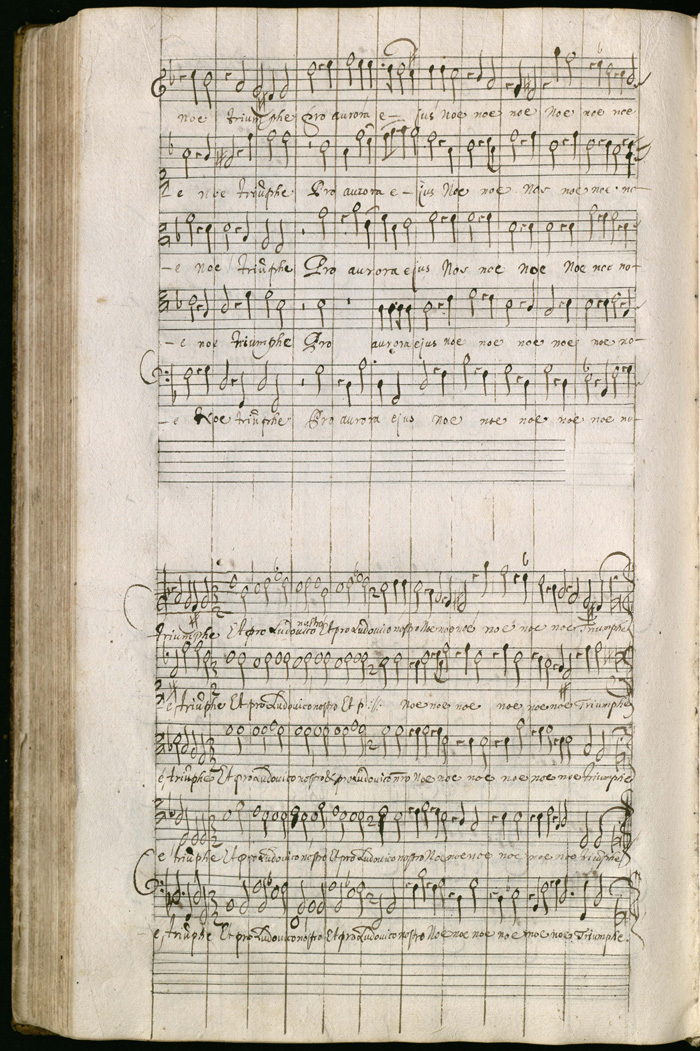 Noe triumphe Pro aurora e– jus Noe noe noe Noe noe noe
–e noe triũphe Pro aurora e–jus Noe noe Noe noe noe no–
–e Noe triũphe Pro aurora ejus Noe noe Noe Noe noe no–
–e noe triumphe Pro aurora ejus noe noe noe noe noe no–
–e Noe triũphe Pro aurora ejus noe noe noe noe noe no–
triumphe Et pro Ludovico nostro Et pro Ludovico nostro Noe noe noe noe noe noe Triumphe
–e triũphe Et pro Ludovico nostro Et p :/: Noe noe noe noe noe noe Triumphe
e triũphe Et pro Ludovico nostro Et pro Ludovico nr̃o Noe noe noe noe noe noe triumphe
e triũphe Et pro Ludovico nostro Et pro Ludovico nostro Noe noe noe noe noe noe triũphe
–e triũphe Et pro Ludovico nostro Et pro Ludovico nostro Noe noe noe noe noe noe Triumphe.